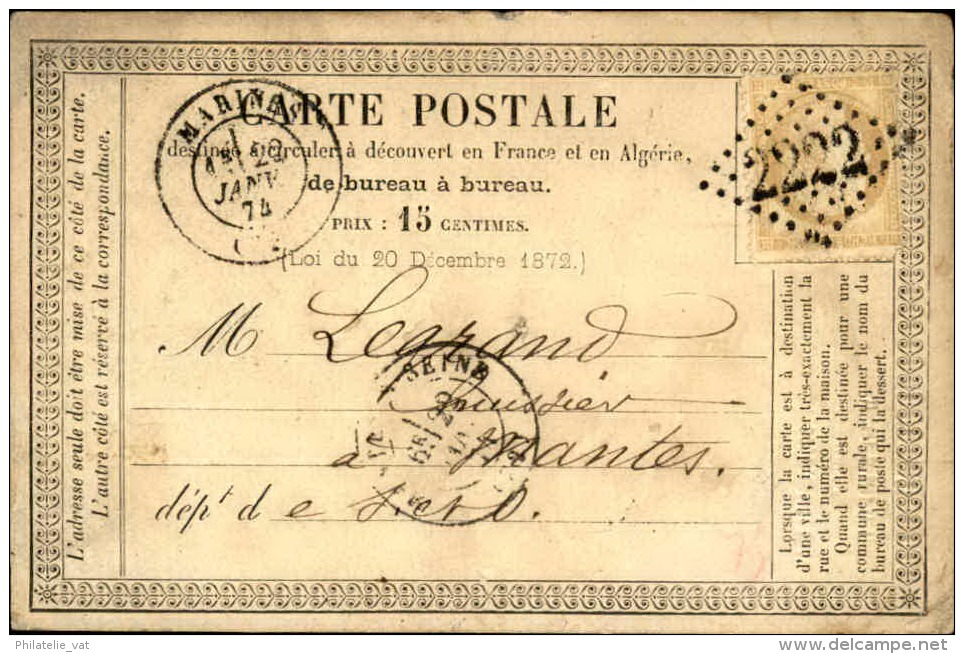 CARTE POSTALE
destinée à circuler à découvert en France et en Algérie,
de bureau à bureau.
PRIX : 15 CENTIMES.
(Loi du 20 Décembre 1872.)
MARINES
22
JANV.
74
2222
L'adresse seule doit être mise de ce côté de la carte.
L'autre côté est réservé à la correspondance.
M Legrand
huissier
à Mantes.
dépt de S. et O.
SEINE
Lorsque la carte est à destination
d'une ville, indiquer très-exactement la
rue et le numéro de la maison.
Quand elle est destinée pour une
commune rurale, indiquer le nom du
bureau de poste qui la dessert.
Philatelie_vat
delcampe.net